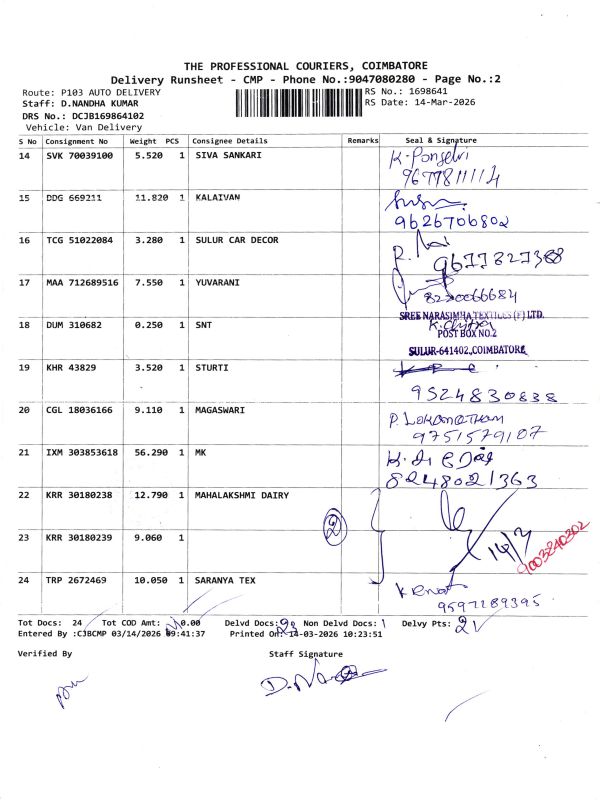 THE PROFESSIONAL COURIERS, COIMBATORE
Delivery Runsheet - CMP - Phone No.:9047080280 - Page No.:2
Route: P103 AUTO DELIVERY
RS No.: 1698641
Staff: D.NANDHA KUMAR
RS Date: 14-Mar-2026
DRS No.: DCJB169864102
Vehicle: Van Delivery
S No Consignment No Weight PCS Consignee Details Remarks Seal & Signature
14 SVK 70039100 5.520 1 SIVA SANKARI K. Ponselvi
9677811114
15 DDG 669211 11.820 1 KALAIVAN
9626706802
16 TCG 51022084 3.280 1 SULUR CAR DECOR
9677827388
17 MAA 712689516 7.550 1 YUVARANI
8220066684
SREE NARASIMHA TEXTILES (P) LTD.
18 DUM 310682 0.250 1 SNT
POST BOX NO.2
SULUR-641402,COIMBATORE
19 KHR 43829 3.520 1 STURTI
9524830838
20 CGL 18036166 9.110 1 MAGASWARI P. LOKANATHAN
9751579107
21 IXM 303853618 56.290 1 MK
8248021363
22 KRR 30180238 12.790 1 MAHALAKSHMI DAIRY
2
23 KRR 30180239 9.060 1
14/3
9003240302
24 TRP 2672469 10.050 1 SARANYA TEX
9597289395
Tot Docs: 24 Tot COD Amt: 0.00 Delvd Docs: 23 Non Delvd Docs: 1 Delvy Pts: 21
Entered By :CJBCMP 03/14/2026 09:41:37 Printed On: 14-03-2026 10:23:51
Verified By Staff Signature